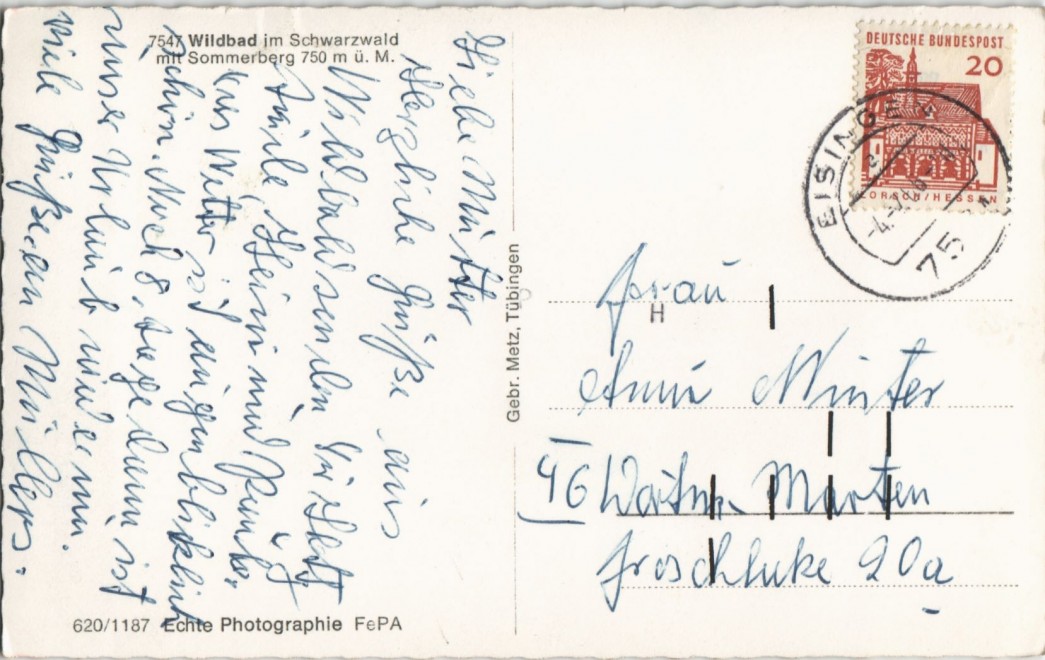 7547 Wildbad im Schwarzwald
mit Sommerberg 750 m ü. M.
Liebe Mutter
Herzliche Grüße aus
Wildbad senden Dir Gert
Heini und
das Wetter ist augenblicklich
schön. Noch 8. Tage dann ist
unser Urlaub wieder um.
viele Grüße an Müllers.
620/1187 Echte Photographie FePA
Gebr. Metz, Tübingen
DEUTSCHE BUNDESPOST
20
LORSCH/HESSEN
EISINGEN
75
Frau
H
Anni Winter
46 Dortm. Marten
Froschluke 20a